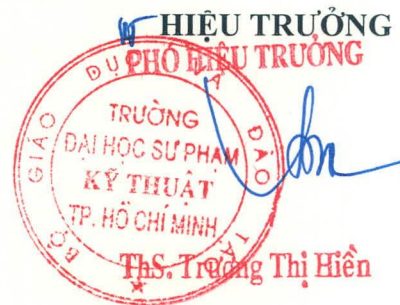 HIỆU TRƯỞNG
PHÓ HIỆU TRƯỞNG
BỘ GIÁO DỤC VÀ ĐÀO TẠO
TRƯỜNG
ĐẠI HỌC SƯ PHẠM
KỸ THUẬT
TP. HỒ CHÍ MINH
ThS. Trương Thị Hiền